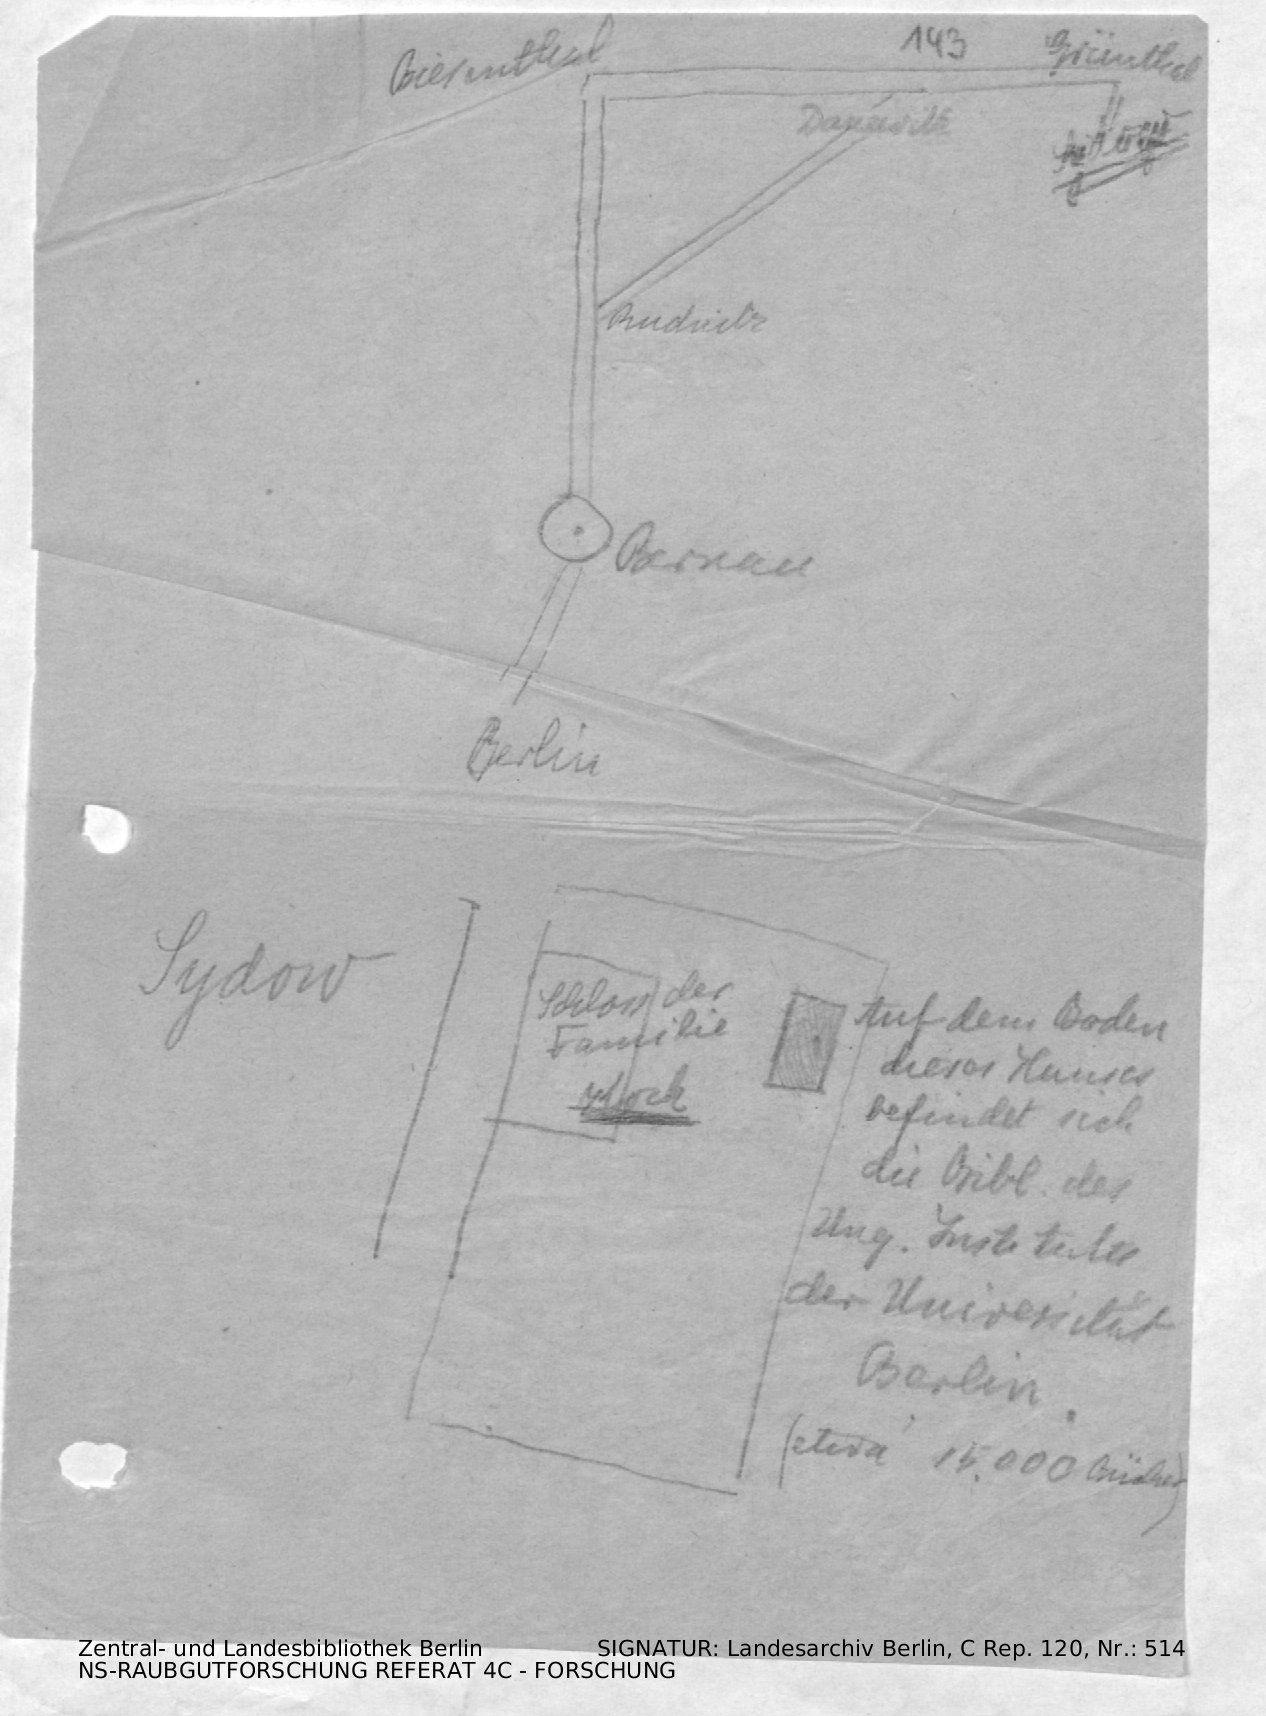 143
Grünthal
Biesenthal
Danewitz
Sydow
Rudnitz
Bernau
Berlin
Sydow
Schloss der
Familie
Auf dem Boden
dieses Hauses
befindet sich
die Bibl. des
Ung. Institutes
der Universität
Berlin.
(etwa 15.000 Bücher)
Zentral- und Landesbibliothek Berlin
SIGNATUR: Landesarchiv Berlin, C Rep. 120, Nr.: 514
NS-RAUBGUTFORSCHUNG REFERAT 4C - FORSCHUNG